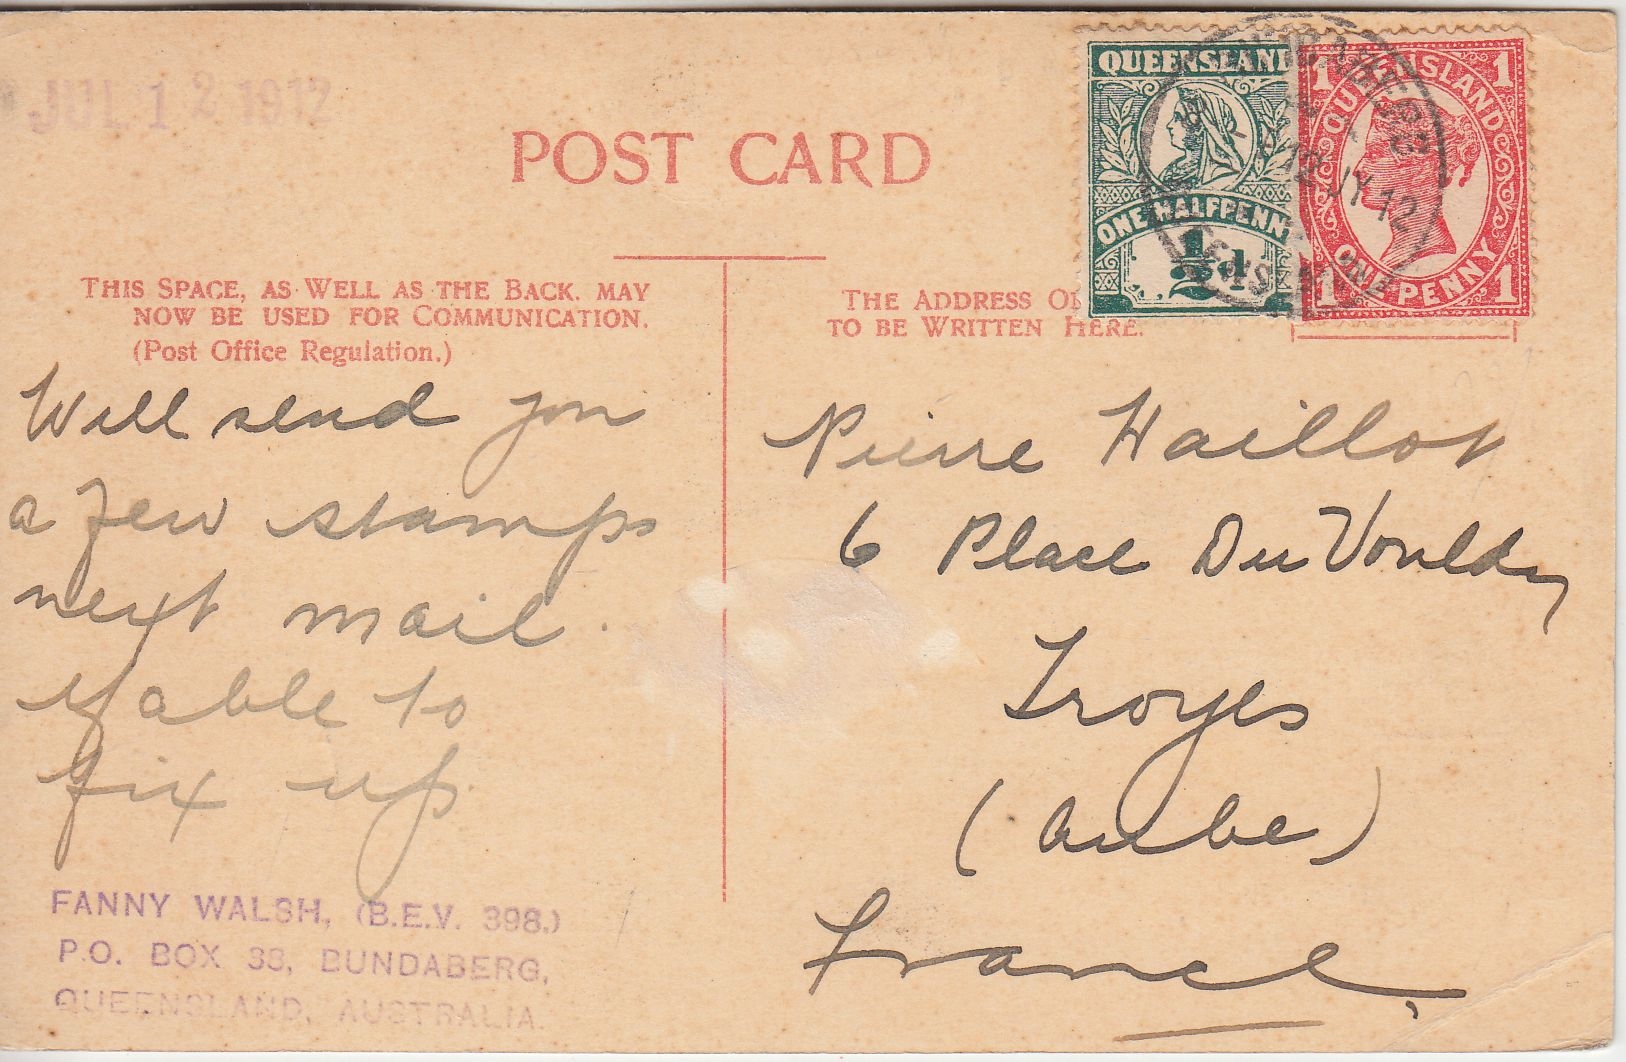 JUL 12 1912
POST CARD
QUEENSLAND
ONE HALFPENNY
½d
1 QUEENSLAND 1
1 ONE PENNY 1
BUNDABERG
12 JY 12
QUEENSLAND
THIS SPACE, AS WELL AS THE BACK, MAY
NOW BE USED FOR COMMUNICATION.
(Post Office Regulation.)
THE ADDRESS O
TO BE WRITTEN HERE.
Will send you
a few stamps
next mail.
if able to
fix up.
FANNY WALSH, (B.E.V. 398.)
P.O. BOX 38, BUNDABERG,
QUEENSLAND, AUSTRALIA.
Pierre Haillot
6 Place Du Vouldy
Troyes
(Aube)
France.